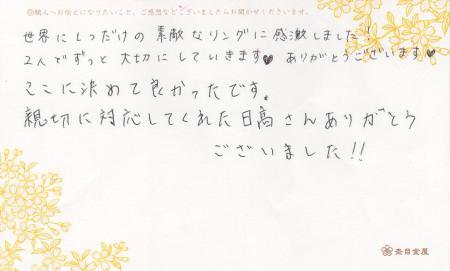 職人へお伝えになりたいこと、ご感想などございましたらお聞かせくださいませ。
世界に1つだけの 素敵なリングに感激しました!
2人でずっと 大切に していきます♥ ありがとうございます♥
ここに決めて良かったです。
親切に対応してくれた日高さんありがとう
ございました!!
杢目金屋